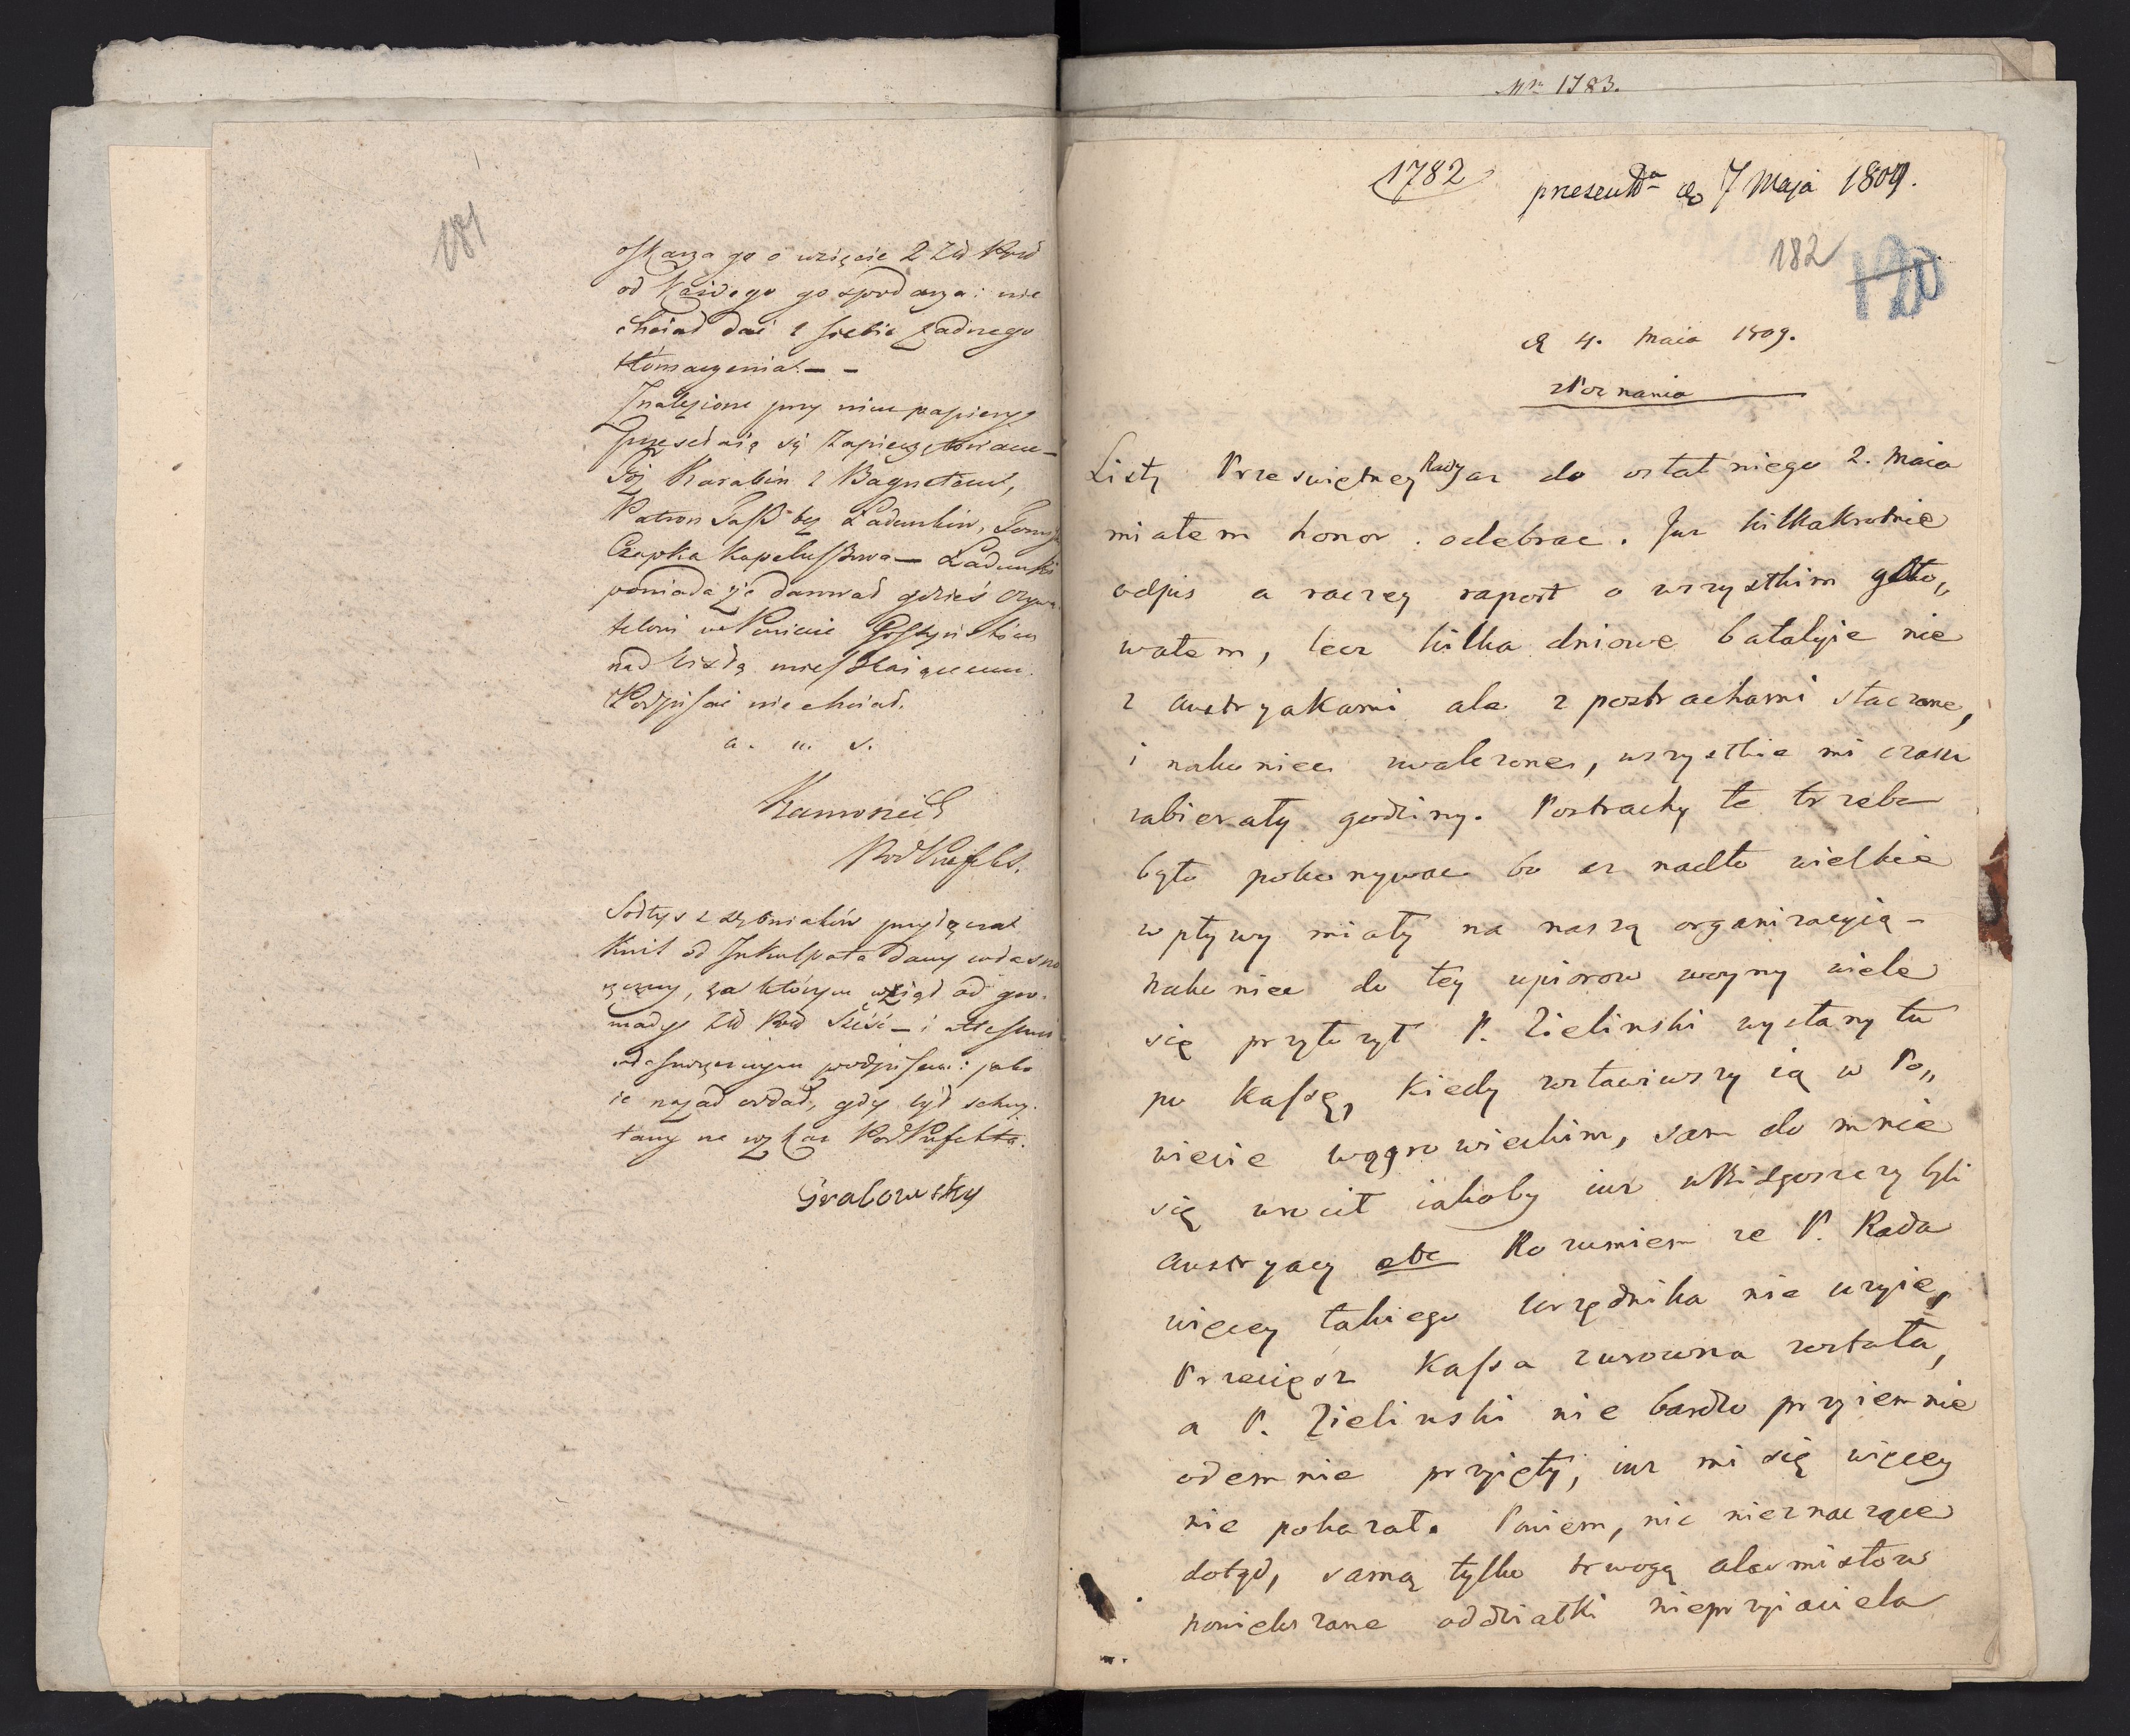 181
oskarza go o wzięcie 2 Zł
od każdego gospodarza: nie
chciał dać z siebie żadnego
tłómaczenia. — —
Znalezione przy nim papiery
przesełaią się zapieczętowane —
Karabin z Bagnetem,
Patron Tasz bez Ładunków,
Czapka kapeluszowa — Ładunki
powiada że darował gdzieś
telowi w Powiecie Gostyńskim
nad Wisłą mieszkaiącemu.
Podpisać nie chciał.
a. u. s.
PodPrefekt.
Sołtys z przyłączał
Kwit od Inkulpata dany własno
ręczny, za którym wziął od gro-
mady Zł sześć — i
własnoręcznym podpisem: jako
ie nazad oddał, gdy był schwy-
tany na PodPrefekta.
Grabowsky
Nro 1783.
1782
presentda do 7 Maja 1809.
182
120
d 4. Maia 1809.
z Poznania
Listy Prześwietney Rady az do ostatniego 2. Maia
miałem honor odebrac. Juz kilkakrotnie
odpis a raczey raport o wszystkim goto„
wałem, lecz kilka dniowe batalyie nie
z austryakami ale z postrachami staczone,
i nakoniec zwalczone, wszystkie mi czasu
zabierały godziny. Postrachy te trzeba
było pokonywac bo az nadto wielkie
wpływy miały na naszą organizacyią —
nakoniec do tey upiorow woyny wiele
się przyłozył P. Zielinski wysłany tu
po Kassę, kiedy zostawiwszy ią w Po„
wiecie wągrowieckim, sam do mnie
się wrocił iakoby iuz w Bidgoszczy byli
austryacy etc Rozumiem ze P. Rada
więcey takiego Urzędnika nie uzyie,
Przecięsz Kassa zurowna została,
a P. Zielinski nie bardzo przyiemnie
odemnie przyięty, iuz mi się więcey
nie pokazał. Powiem, nic nieznaczące
dotąd, samą tylko trwogą alarmistow
powiekszone oddziałki nieprzyiaciela